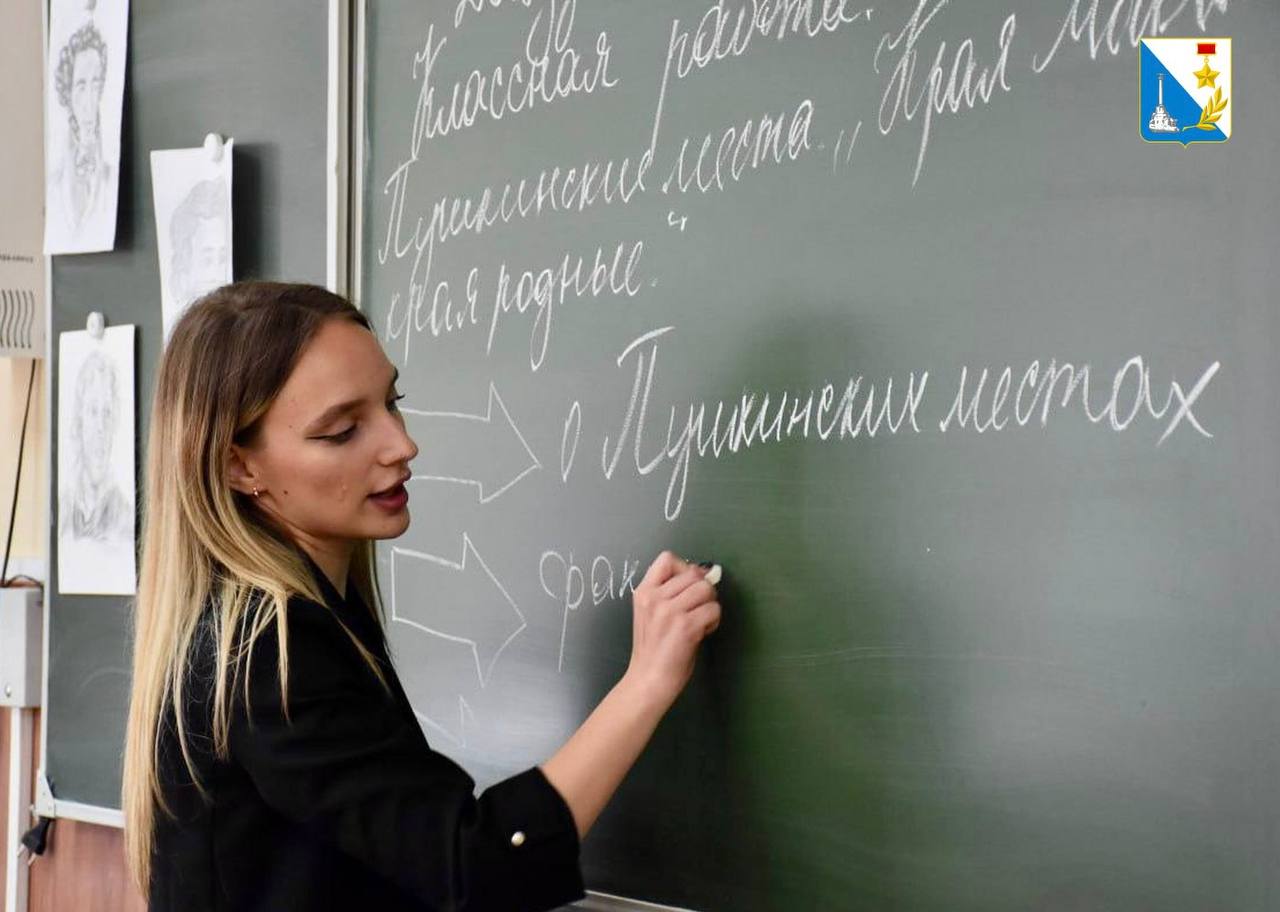 Классная работа.
Пушкинские места. „Края мои,
края родные."
о Пушкинских местах
фак